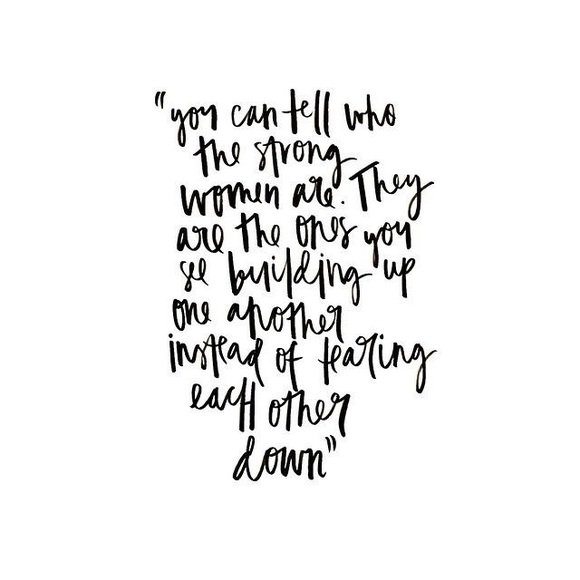 "you can tell who
the strong
women are. They
are the ones you
see building up
one another
instead of tearing
each other
down"